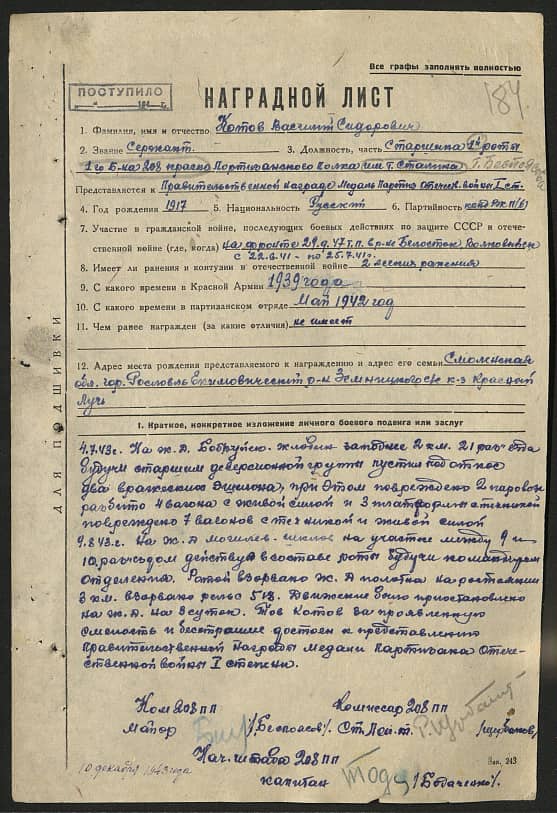 Все графы заполнять полностью
ПОСТУПИЛО
194 г.
184
НАГРАДНОЙ ЛИСТ
1. Фамилия, имя и отчество Котов Василий Сидорович
2. Звание Сержант 3. Должность, часть Старшина 1й роты
1го Б-на 208 Партизанского Полка им т. Сталина
Представляется к Правительственной Награде Медаль Партиз отечек. войны I ст.
4. Год рождения 1917 5. Национальность Русский 6. Партийность
7. Участие в гражданской войне, последующих боевых действиях по защите СССР и отече-
ственной войне (где, когда) на фронте 29.д. 47 т.п. в р-н Белосток Волковыск
с 22.6.41 - по 25.7.41г.
8. Имеет ли ранения и контузии в отечественной войне 2 ранения
9. С какого времени в Красной Армии 1939 года
10. С какого времени в партизанском отряде Май 1942 год
11. Чем ранее награжден (за какие отличия) не имеет
12. Адрес места рождения представляемого к награждению и адрес его семьи Смоленская
обл. гор. Рославль Екимовический р-н к-з Красный
Луч
I. Краткое, конкретное изложение личного боевого подвига или заслуг
4.7.43г. На ж. д. Бобруйск - Жлобин западнее 2 км. 21 раз'езда
будучи старшим диверсионной группы пустил под откос
два вражеских эшелона, при этом повреждено 2 паровоза
разбито 4 вагона с живой силой и 3 платформы с техникой
повреждено 7 вагонов с техникой и живой силой
9.8.43г. На ж. д Могилев - на участке между 9 и
10 раз'ездом действуя в составе роты будучи командиром
отделения. Ротой взорвано ж. д полотна на расстоянии
3 км. взорвано рельс 518. Движение было приостановлено
на ж. д. на 3 суток. Тов Котов за проявленную
смелость и бесстрашие достоен к представлению
Правительственной Награды Медали Партизана Отече-
ственной войны I степени.
Ком 208 пп Комиссар 208 пп
Майор /Беспоясов/ Ст. Лей-т. /Щербаков/
Нач. штаба 208 пп
капитан
10 декабря 1943 года
Зак. 243
ДЛЯ ПОДШИВКИ